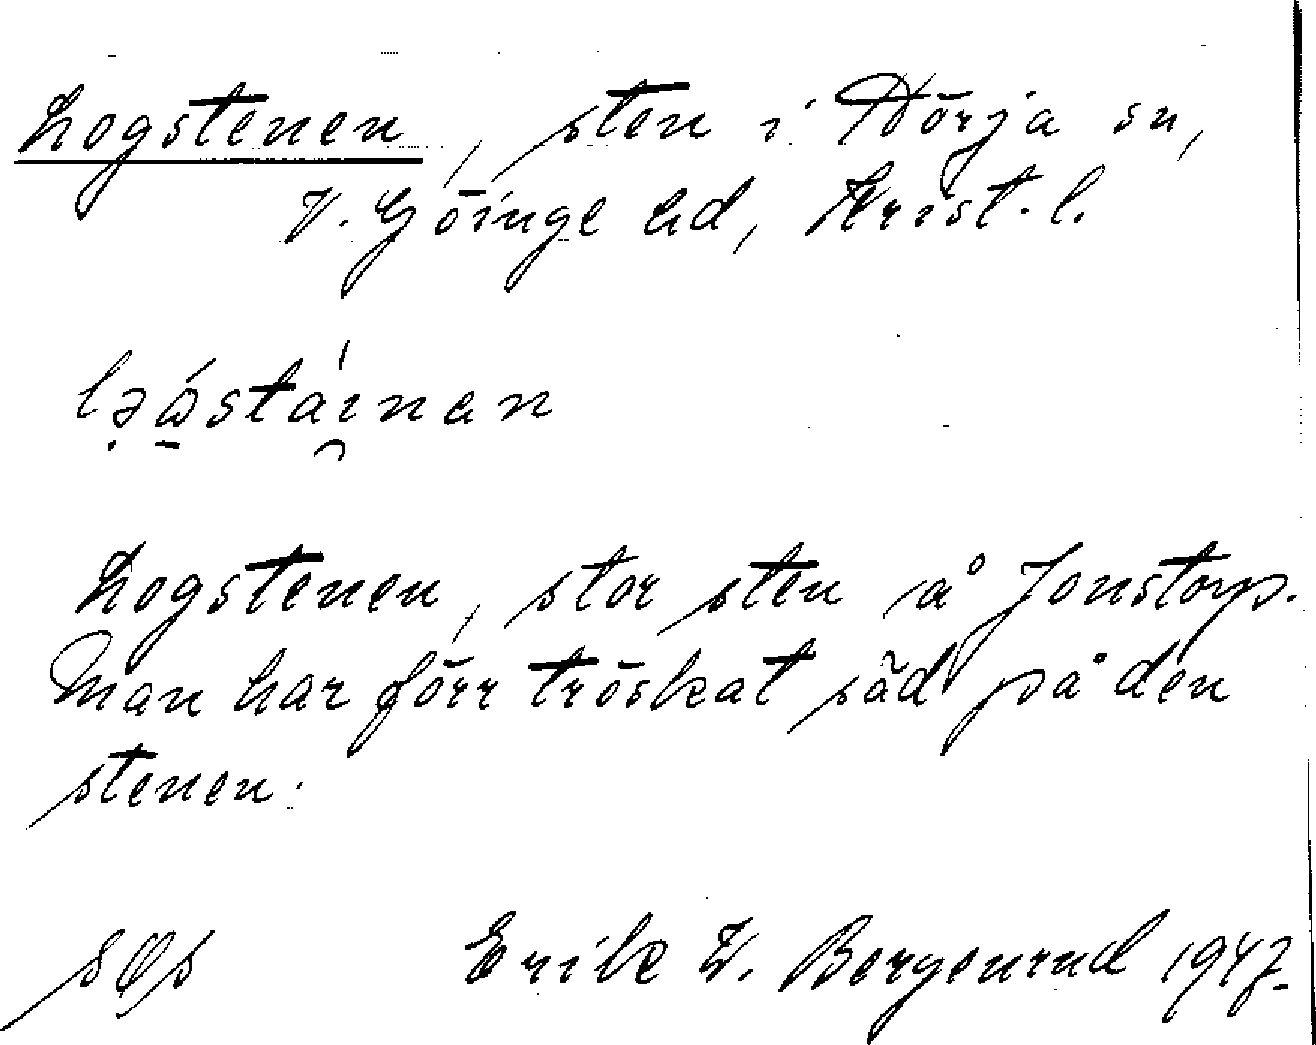 Logstenen, sten i Nörja sn,
V. Göinge hd, Krist. l.
Logstenen, stor sten å Jonstorp.
Man har förr tröskat säd på den
stenen.
Erik W. Bergenrud 1947